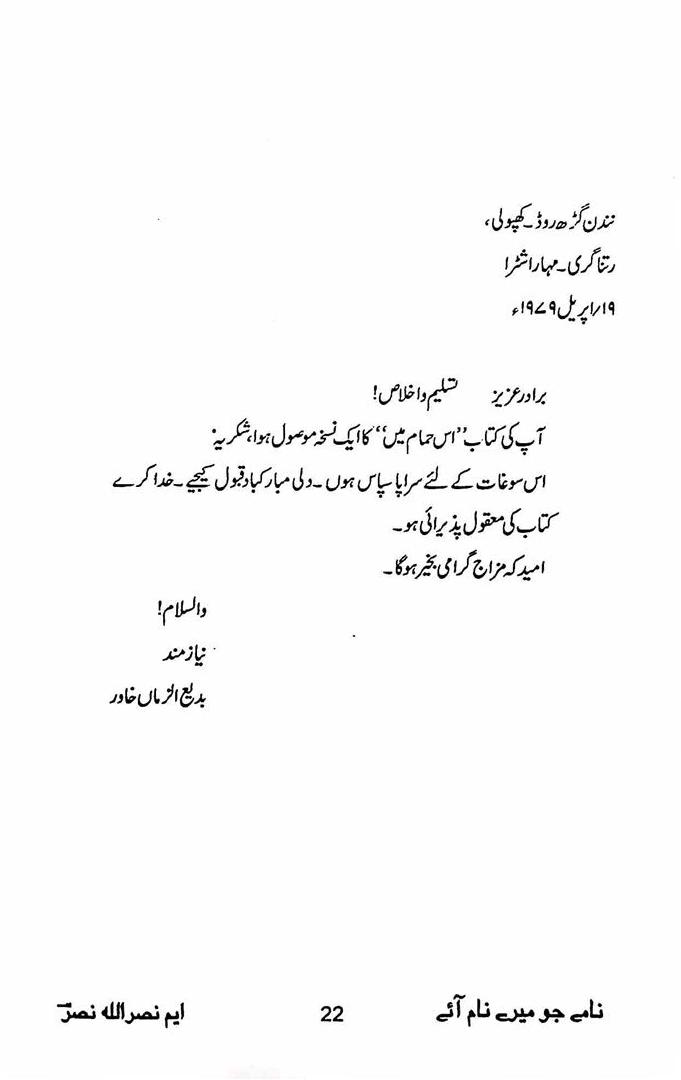 نندن گڑھ روڈ۔ کھپولی،
رتناگری۔ مہاراشٹرا
۱۹/اپریل ۱۹۷۹ء
برادر عزیز تسلیم و اخلاص!
آپ کی کتاب ”اس حمام میں“ کا ایک نسخہ موصول ہوا، شکریہ
اس سوغات کے لئے سراپا سپاس ہوں۔ دلی مبارکباد قبول کیجیے۔ خدا کرے
کتاب کی معقول پذیرائی ہو۔
امید کہ مزاج گرامی بخیر ہوگا۔
والسلام!
نیازمند
بدیع الزماں خاور
نامے جو میرے نام آئے 22 ایم نصر اللہ نصر